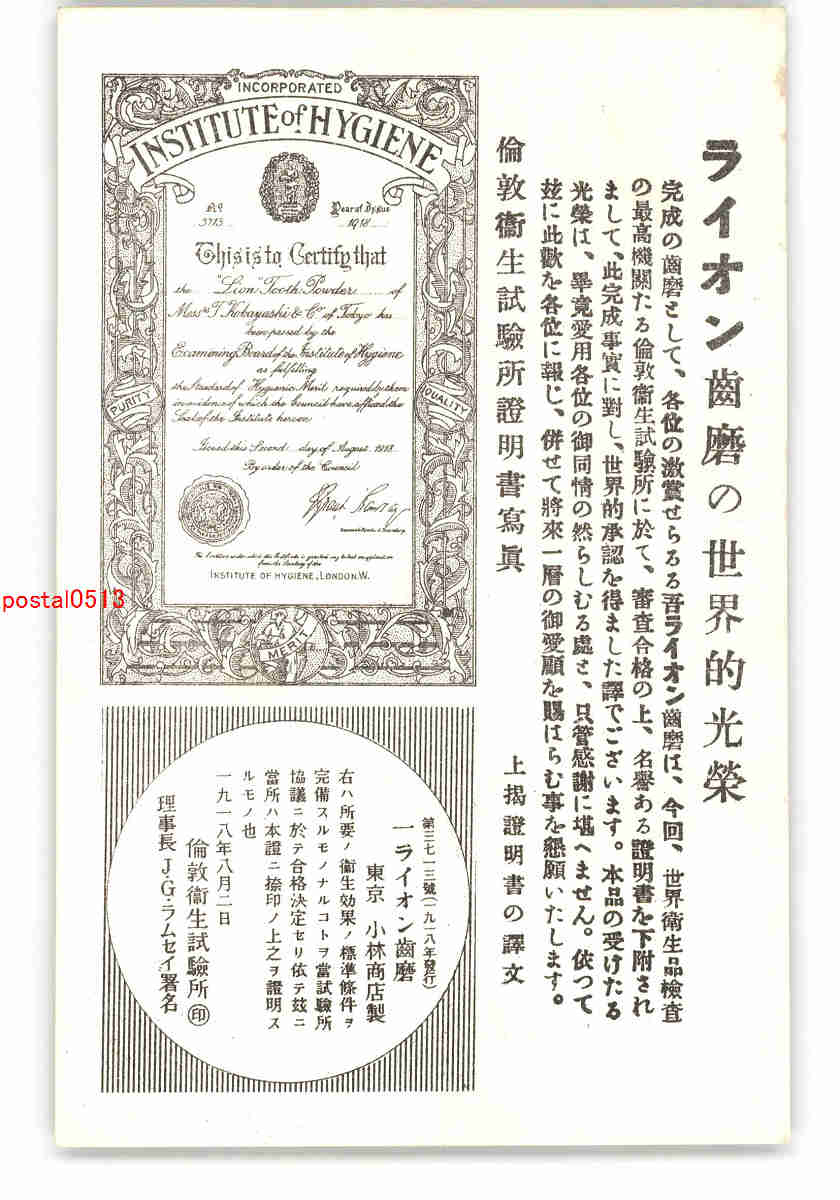 ライオン齒磨の世界的光榮
完成の齒磨として、各位の激賞せらるる吾ライオン齒磨は、今回、世界衛生品檢査
の最高機關たる倫敦衞生試驗所に於て、審査合格の上、名譽ある證明書を下附され
まして、此完成事實に對し、世界的承認を得ました譯でございます。本品の受けたる
光榮は、畢竟愛用各位の御同情の然らしむる處と、只管感謝に堪へません。依つて
玆に此歡を各位に報じ、併せて將來一層の御愛顧を賜はらむ事を懇願いたします。
倫敦衞生試驗所證明書寫眞
上揭證明書の譯文
INCORPORATED
INSTITUTE of HYGIENE
No 3713
Year of Issue 1918
This is to Certify that
the "Lion" Tooth Powder of
Messrs T. Kobayashi & Co of Tokyo has
been passed by the
Examining Board of the Institute of Hygiene
as fulfilling
the Standard of Hygienic Merit required by them
in evidence of which the Council have affixed the
Seal of the Institute hereon
Issued this Second day of August 1918
By order of the Council
PURITY
QUALITY
INSTITUTE OF HYGIENE, LONDON. W.
MERIT
第三七一三號(一九一八年發行)
一ライオン齒磨
東京 小林商店製
右ハ所要ノ衞生效果ノ標準條件ヲ
完備スルモノナルコトヲ當試驗所
協議ニ於テ合格決定セリ依テ玆ニ
當所ハ本證ニ捺印ノ上之ヲ證明ス
ルモノ也
一九一八年八月二日
倫敦衞生試驗所㊞
理事長 J・G・ラムセイ署名
postal0513